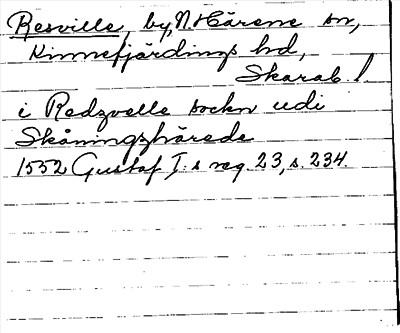 Resville, by, N. Härene sn,
Kinnefjärdings hd,
Skarab. l.
i Redzvelle sockn udi
Skåningzhärede
1552 Gustaf I:s reg. 23, s. 234.